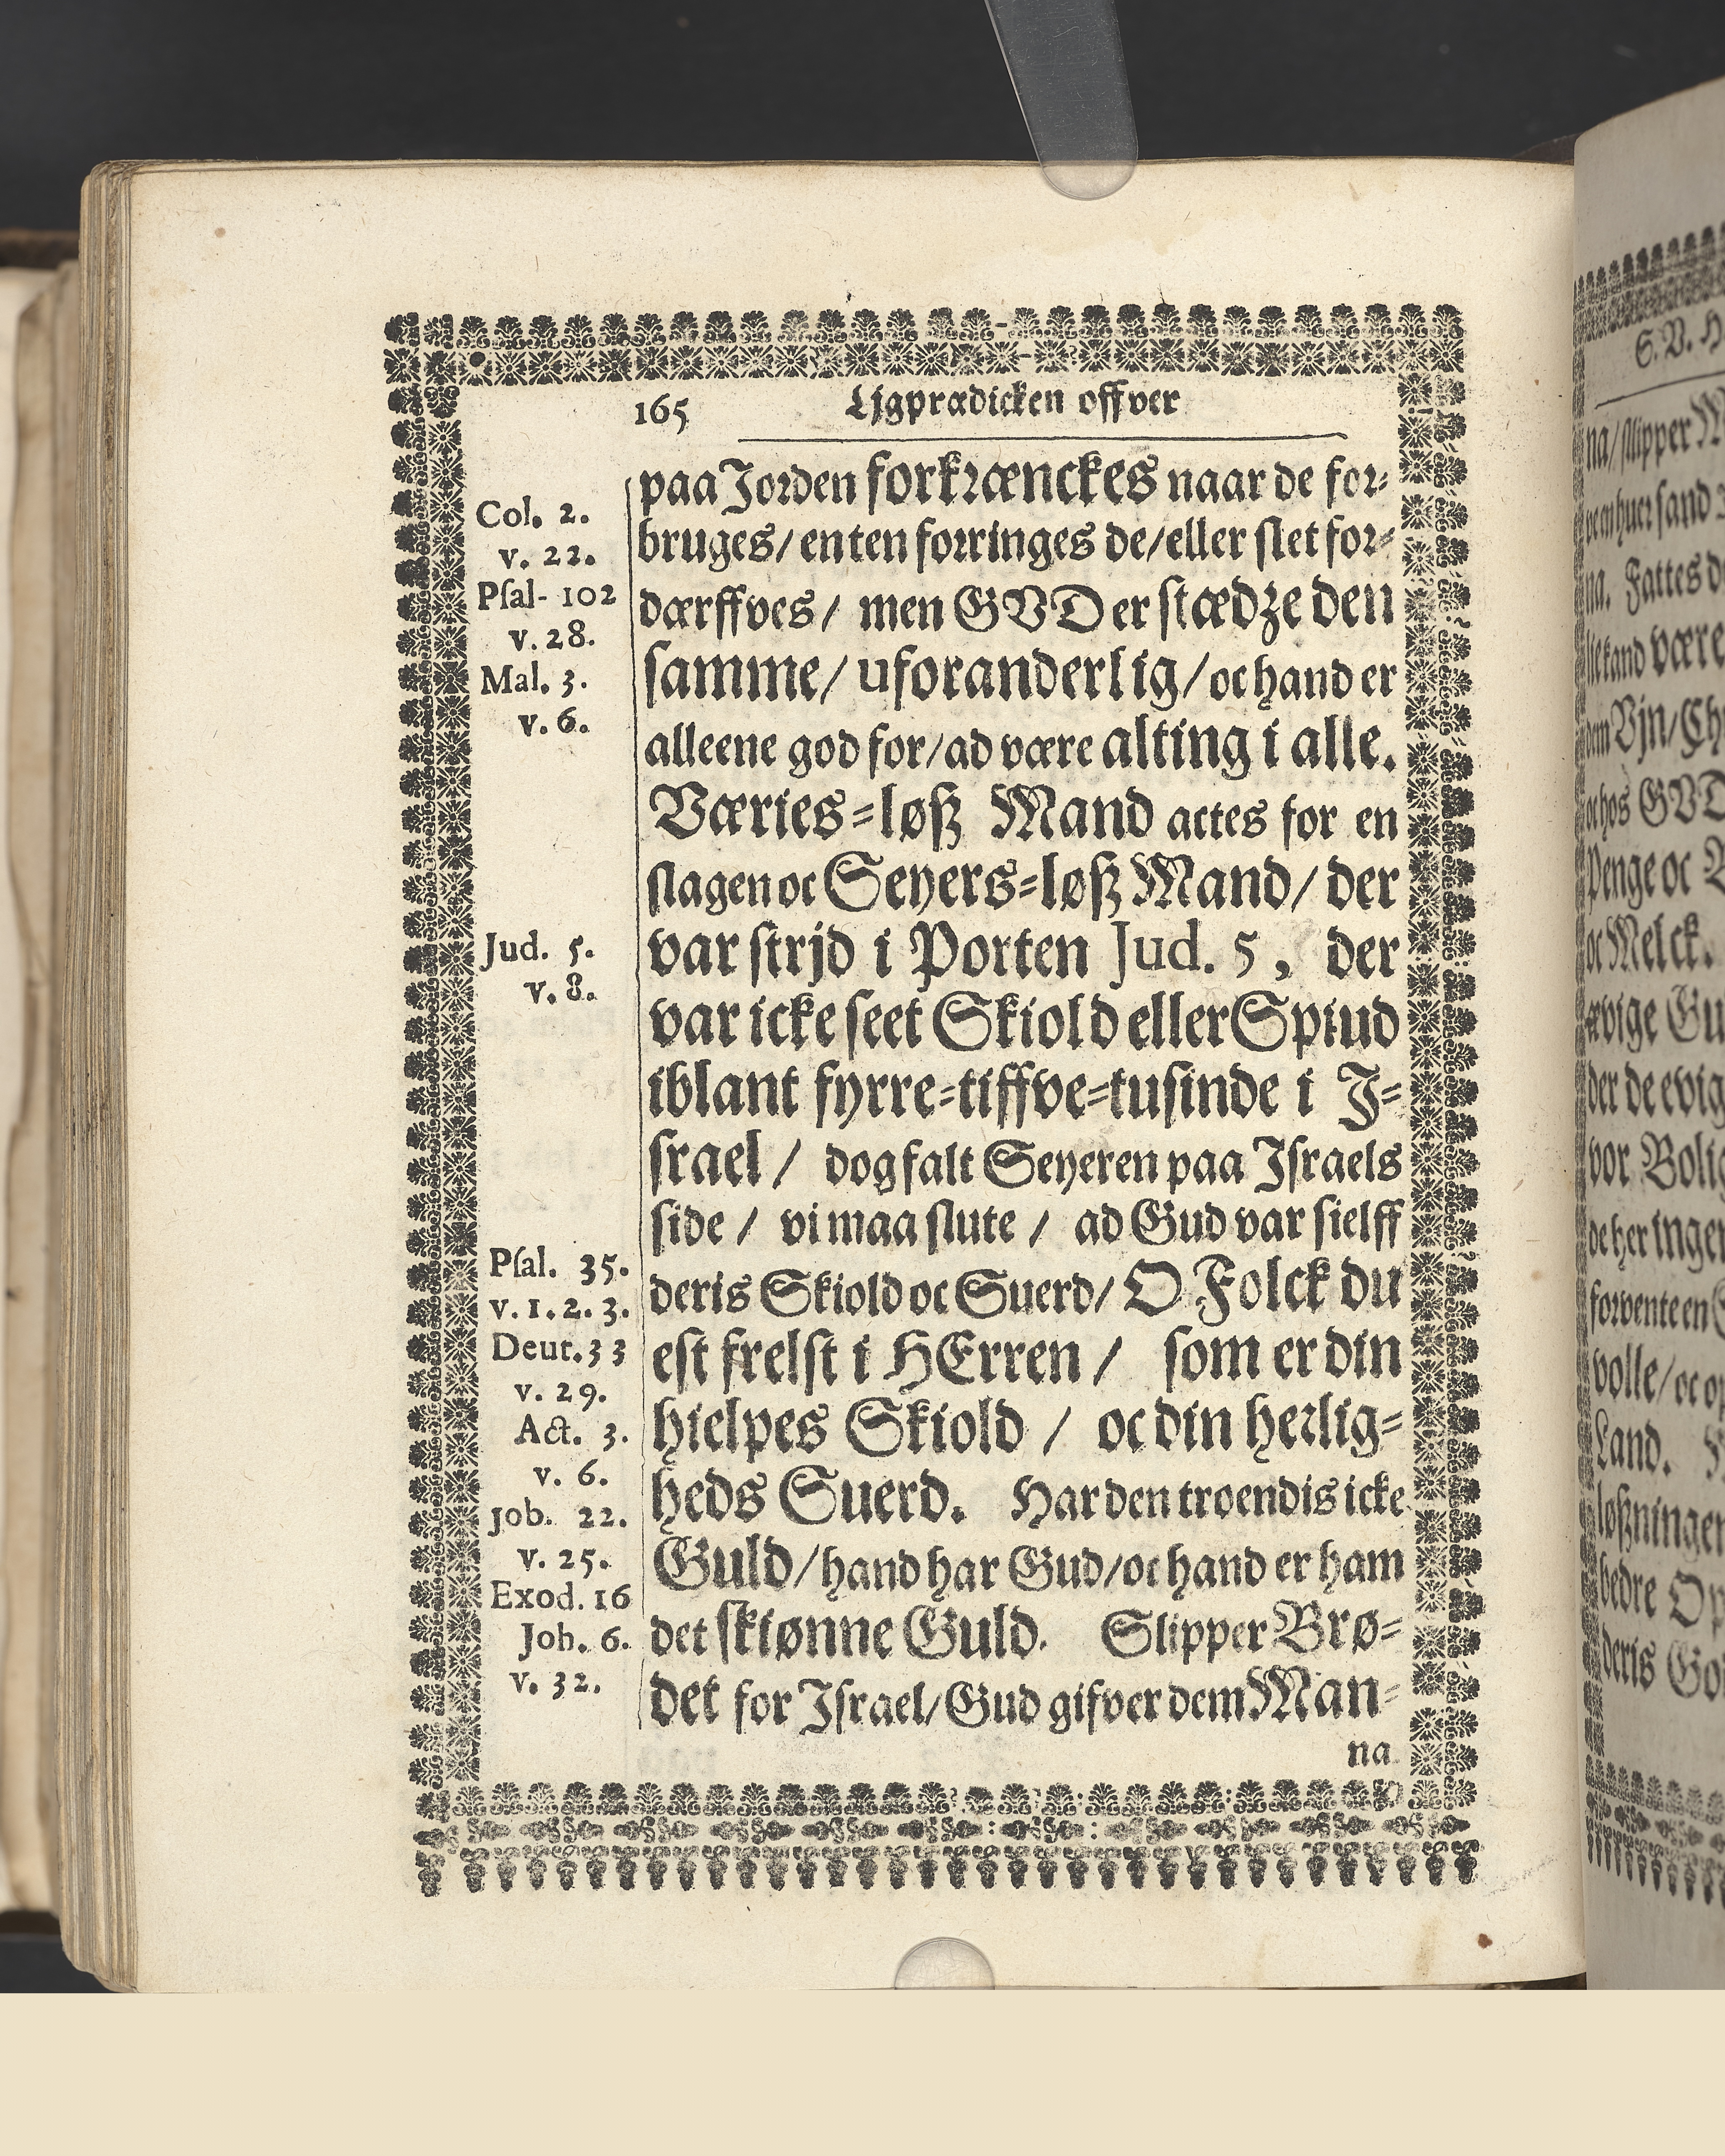 165 Ljgprædicken offver
Col. 2.
v. 22.
Psal- 102
v. 28.
Mal. 3.
v. 6.
Jud. 5.
v. 8.
Psal. 35.
v. 1. 2. 3.
Deut. 33
v. 29.
Act. 3.
v. 6.
Job. 22.
v. 25.
Exod. 16
Joh. 6.
v. 32.
paa Jorden forkrænckes naar de for-
bruges/ enten forringes de/ eller slet for-
dærffves/ men GVD er stædze den
samme/ uforanderlig/ oc hand er
alleene god for/ ad være alting i alle.
Væries-løß Mand actes for en
slagen oc Seyers-løß Mand/ der
var strjd i Porten Jud. 5, der
var icke seet Skiold eller Spiud
iblant fyrre-tiffve-tusinde i J-
srael / dog falt Seyeren paa Israels
side / vi maa slute / ad Gud var sielff
deris Skiold oc Suerd/ O Folck du
est frelst i HErren / som er din
hielpes Skiold / oc din herlig-
heds Suerd. Har den troendis icke
Guld/ hand har Gud/ oc hand er ham
det skiønne Guld. Slipper Brø-
det for Israel/ Gud gifver dem Man-
na
S. V. H
na/ slipper M
na. Fattes d
oc Melck.
Penge oc
vor Bolig
Land.
bedre Op